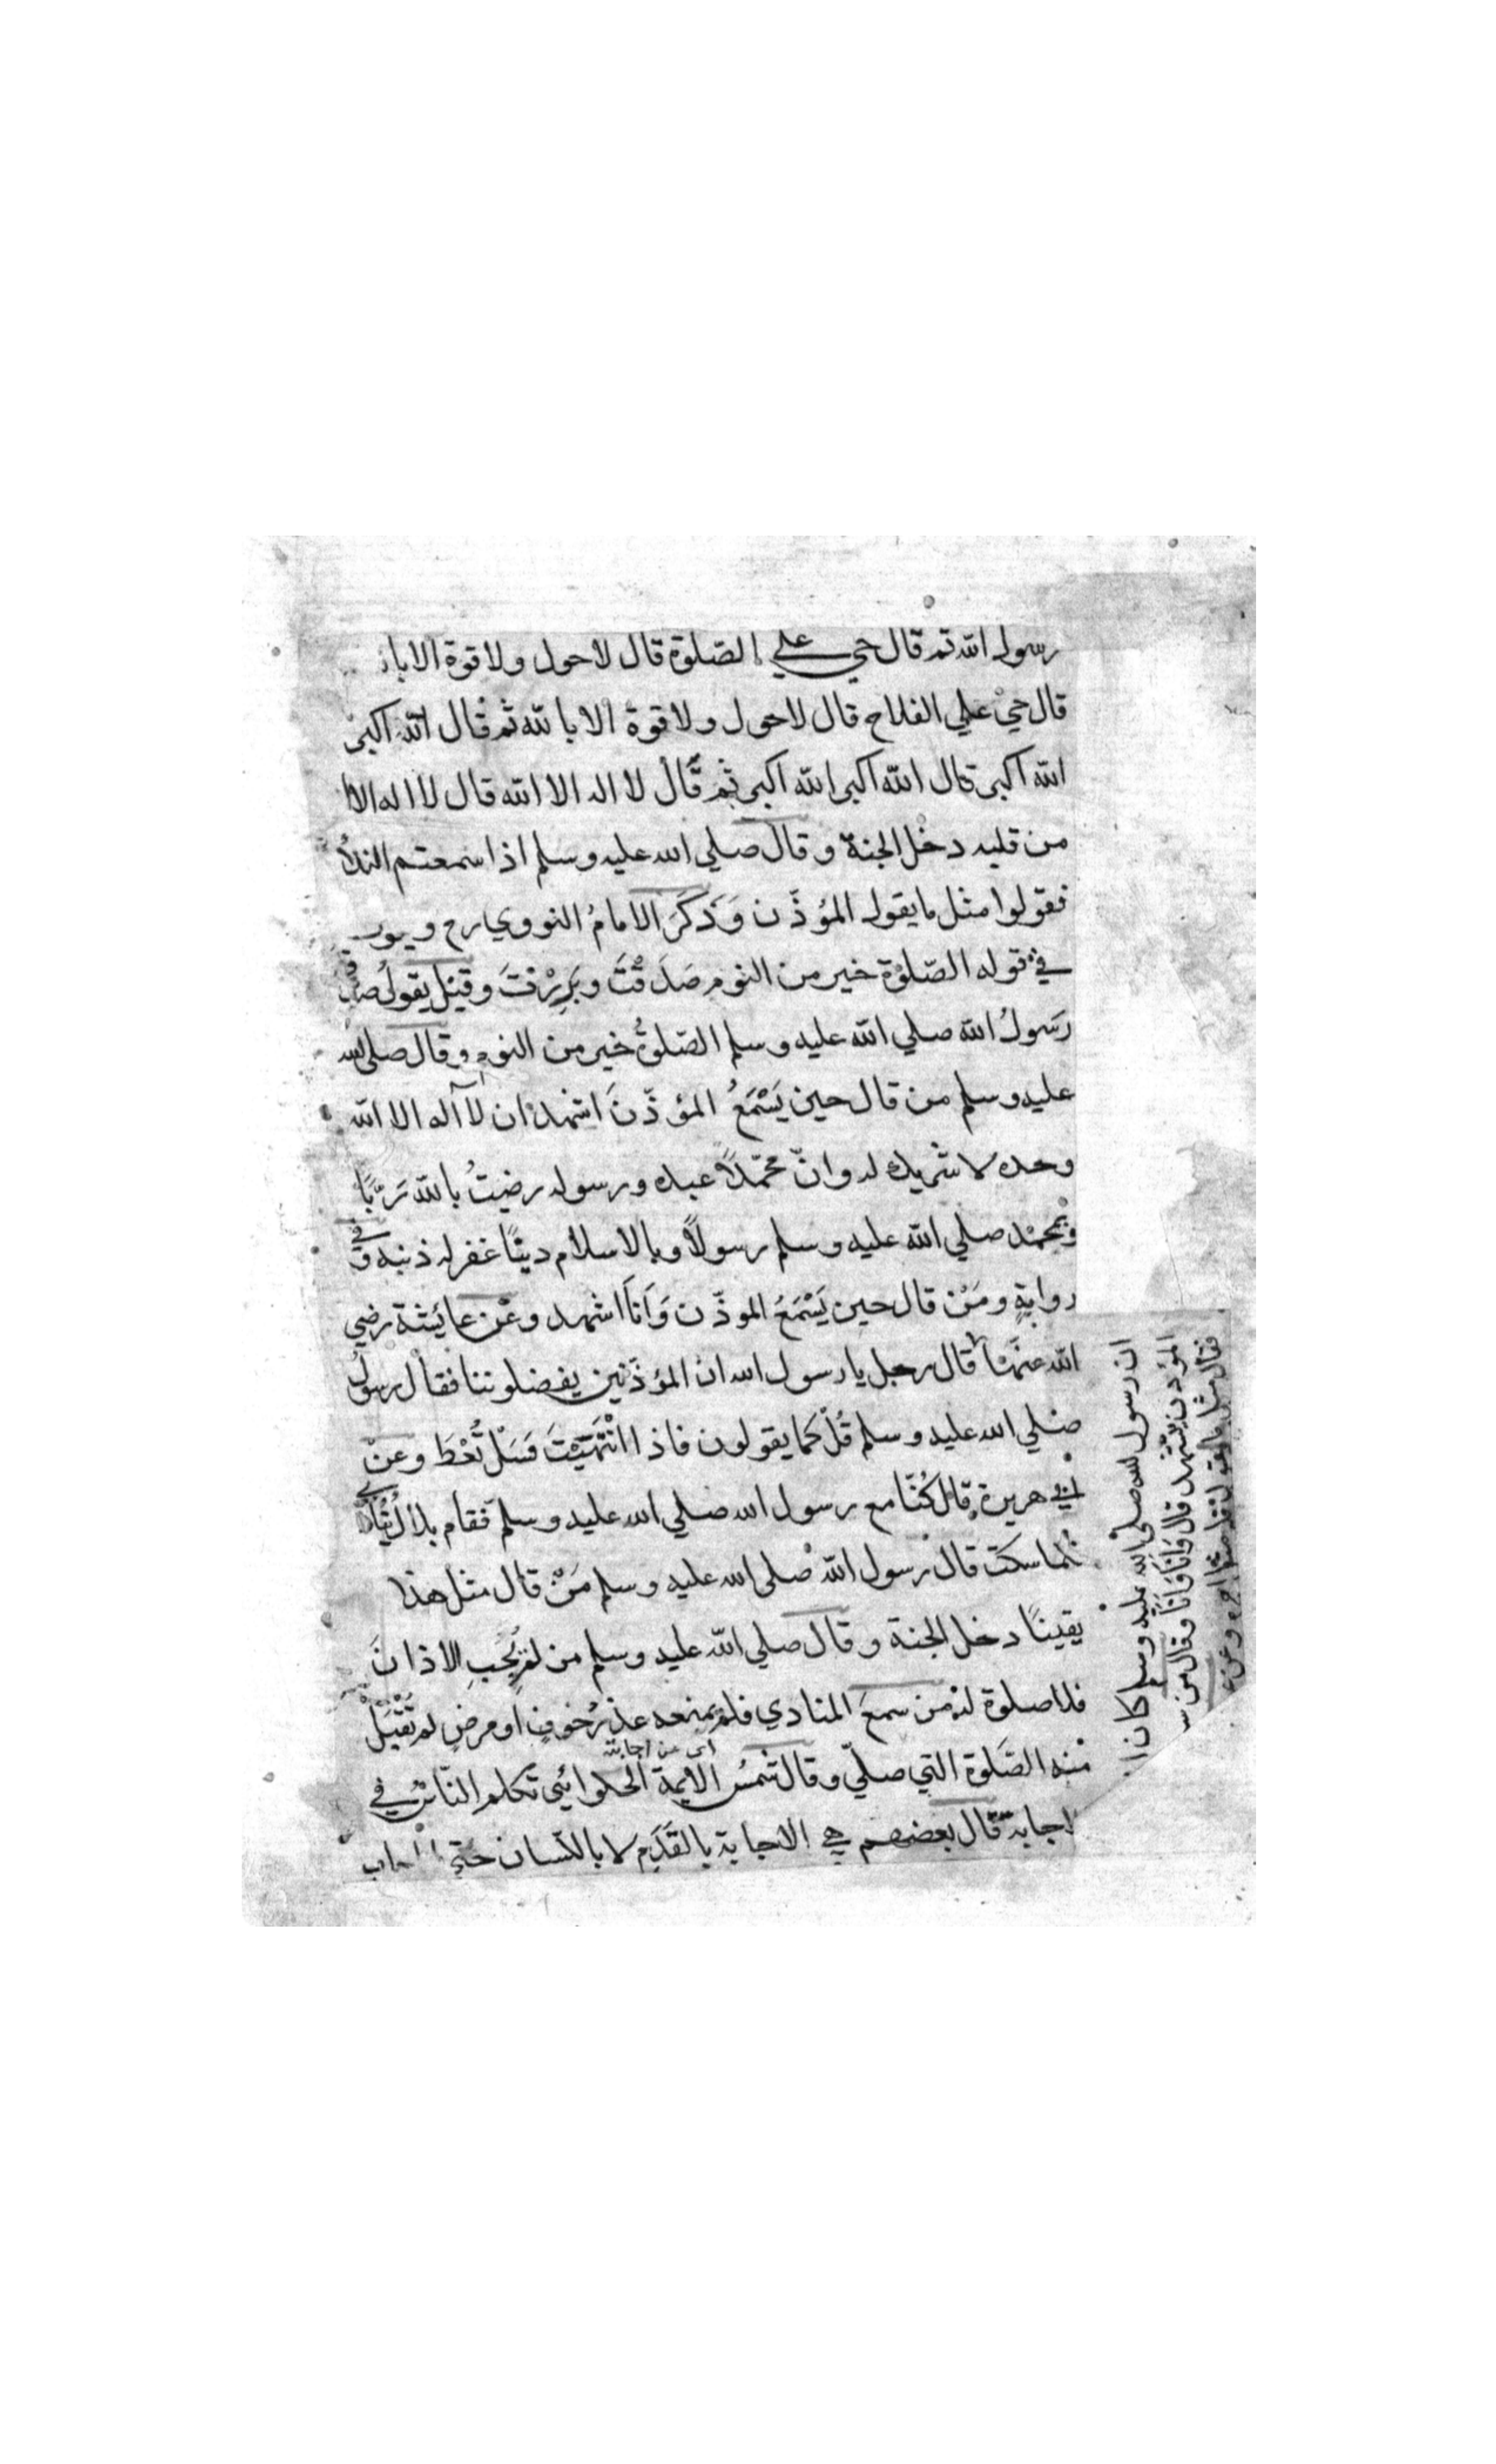 رسول الله ثم قال حي علي الصّلوة قال لا حول ولا قوة الا با
قال حيّ علي الفلاح قال لا حول ولا قوة الا بالله ثم قال الله اكبر
الله اكبر قال الله اكبر الله اكبر ثم قال لا اله الا الله قال لا اله الا
من قلبه دخل الجنة وقال صلي الله عليه وسلم اذا سمعتم الندأ
فقولوا مثل ما يقول المؤذّن وَذَكَرَ الامامُ النووي رح
في قوله الصّلوْة خير من النوم صَدَقْتَ وبَرِرْتَ وقيل يقولُ صدق
رَسولُ الله صلي الله عليه وسلم الصّلوةُ خير من النوم وقال صلي الله
عليه وسلم من قال حين يَسْمَعُ المؤذّنَ اشهد ان لا آله الا الله
وحده لا شريك له وانّ محمّداً عبده ورسوله رضيتُ بالله رَبًّا
وبمحمّد صلي الله عليه وسلم رسولاً وبالاسلام دينًا غفر له ذنبه وفي
روايةٍ ومَنْ قال حين يَسْمَعُ الموذّن وَاَنَا اشهد وعن عايشة رضي
الله عنهما قال رجل يا رسول الله ان المؤذّنين يفضلوننا فقال رسولُ
صلي الله عليه وسلم قُلْ كما يقولون فاذا انْتَهَيْتَ فَسَلْ تُعْطَ وعنْ
ابي هريرة قال كُنّا مع رسول الله صلي الله عليه وسلم فقام بلالُ يُنَادي
فلما سكت قال رسول الله صلي الله عليه وسلم مَنْ قال مثل هذا
يقينًا دخل الجنة وقال صلي الله عليه وسلم من لم يُجِبِ الاذانَ
فلا صلوة له من سمعَ المنادي فلم يمنعه عذرُ خوفٍ او مرضٍ لم تُقْبَلْ
اي عن اجابته
منه الصَّلوة التي صلّي وقال شمسُ الايمة الحلوائي تكلم النّاسُ في
اجابة قال بعضهم هي الاجابة بالقَدَمِ لا باللّسان حتي اجاب
ان رسول الله صلي الله عليه وسلم كان اذا
المؤذن يتشهد قال وَاَنَا وَاَنَا وقال من
فقال مثل ما يقول فله مثل اجره وعن